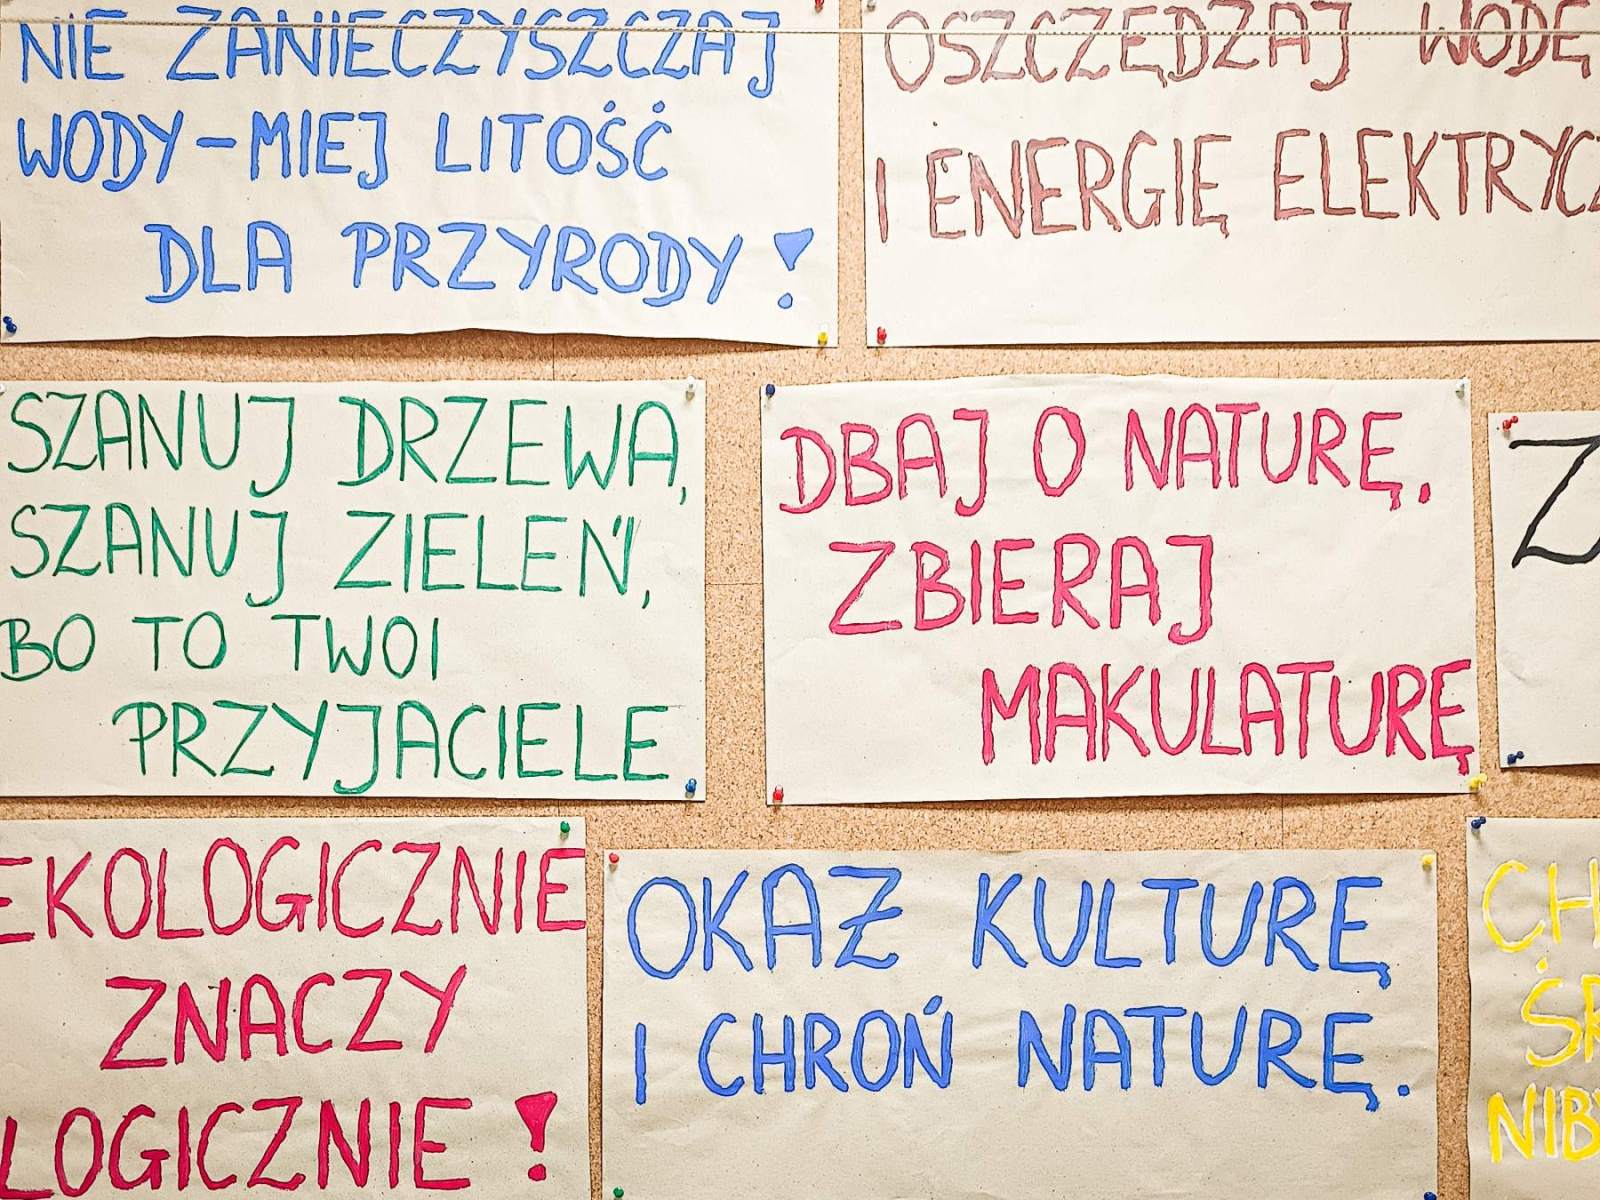 NIE ZANIECZYSZCZAJ
WODY - MIEJ LITOŚĆ
DLA PRZYRODY!
OSZCZĘDZAJ WODĘ
I ENERGIĘ ELEKTRYCZ
SZANUJ DRZEWA,
SZANUJ ZIELEŃ,
BO TO TWOI
PRZYJACIELE
DBAJ O NATURĘ.
ZBIERAJ
MAKULATURĘ
Z
EKOLOGICZNIE
ZNACZY
LOGICZNIE!
OKAŻ KULTURĘ
I CHROŃ NATURĘ.
CH
ŚR
NIBY